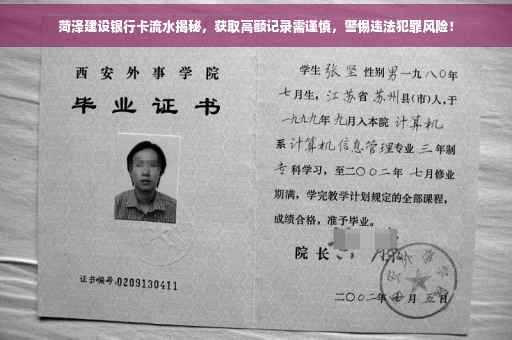 菏泽建设银行卡流水揭秘，获取高额记录需谨慎，警惕违法犯罪风险！
西安外事学院
毕业证书
证书编号:0209130411
学生 张坚 性别 男 一九八〇年
七月生，江苏省苏州县(市)人,于
一九九九年九月入本院 计算机
系 计算机信息管理专业 三 年制
专科学习，至二〇〇二年 七月修业
期满，学完教学计划规定的全部课程，
成绩合格，准予毕业。
院长
二〇〇二年 月 五日